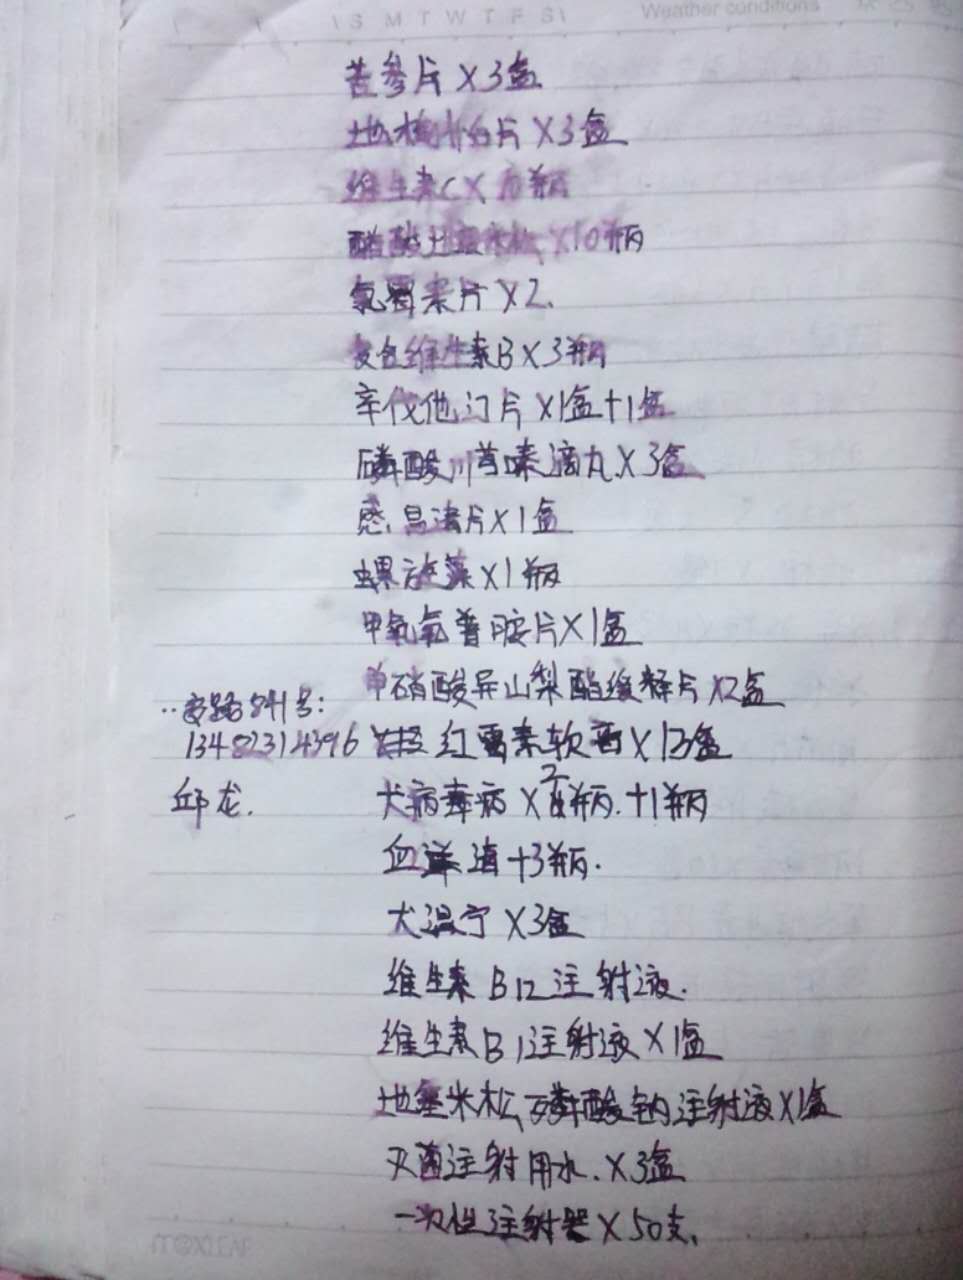 S M T W T F S
Weather conditions
苦参片×3盒
地榆升白片×3盒
维生素C×10瓶
醋酸地塞米松×10瓶
氯霉素片×2、
复合维生素B×3瓶
辛伐他汀片×1盒+1盒
磷酸川芎嗪滴丸×3盒
感息清片×1盒
螺旋藻×1瓶
甲氧氯普胺片×1盒
单硝酸异山梨酯缓释片×2盒
路841号:
13482314396
红霉素软膏×13盒
邱龙.
犬病毒病×2瓶.+1瓶
血 清+3瓶.
犬温宁×3盒
维生素B12注射液.
维生素B1注射液×1盒
地塞米松磷酸钠注射液×1盒
灭菌注射用水.×3盒
一次性注射器×50支、